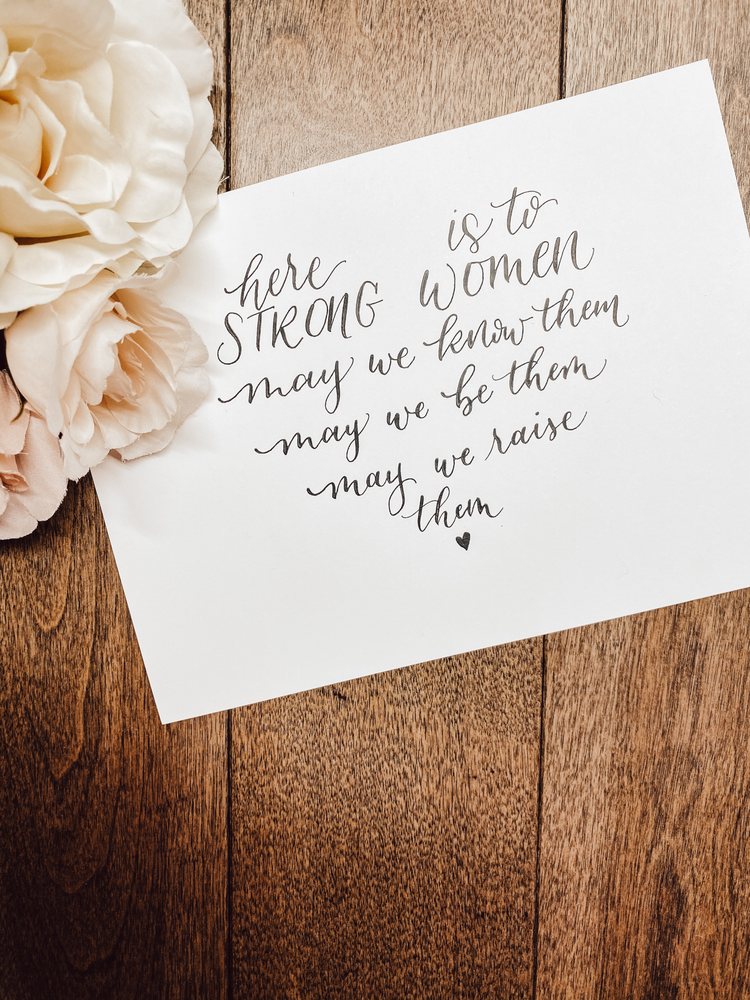 here is to
STRONG WOMEN
may we know them
may we be them
may we raise
them